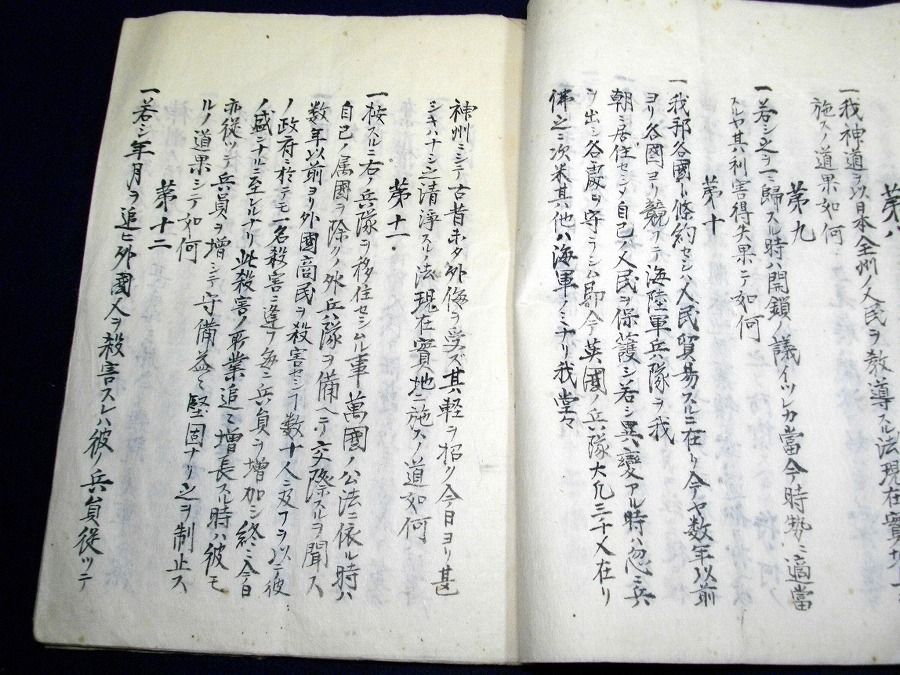 第八
一我神道ヲ以日本全州ノ人民ヲ教導スル法現在實地ニ
施スノ道果如何
第九
一若シ之ヲ一ニ歸スル時ハ開鎖ノ議イツレカ當今時勢ニ適當
スルヤ其利害得失果シテ如何
第十
一我邦各國ト條約セシハ人民貿易スルニ在リ今ヤ数年以前
ヨリ各國ヨリ競フテ海陸軍兵隊ヲ我
朝ニ居住セシメ自己ノ人民ヲ保護シ若シ異變アル時ハ忽ニ兵
ヲ出シ各處ヲ守ラシム即今英國ノ兵隊大凡三千人在リ
佛之ニ次米其他ハ海軍ノミナリ我堂々
神州ニシテ古昔未タ外侮ヲ受ズ其軽ヲ招ク今日ヨリ甚
シキハナシ之清淨スルノ法現在實地ニ施スノ道如何
第十一
一按スルニ右ノ兵隊ヲ移住セシムル事萬國ノ公法ニ依ル時ハ
自己ノ属國ヲ除クノ外兵隊ヲ備ヘテ交際スルヲ聞ス
数年以前ヨリ外國商民ヲ殺害セシヿ数十人ニ及フヲ以テ彼
ノ政府ニ於テモ一名殺害ニ逢フ毎ニ兵員ヲ増加シ終ニ今日
ノ盛ンナルニ至レルナリ此殺害ノ所業追々増長スル時ハ彼モ
亦従ツテ兵員ヲ増シテ守備益々堅固ナリ之ヲ制止ス
ルノ道果シテ如何
第十二
一若シ年月ヲ追ヒ外國人ヲ殺害スレハ彼ノ兵員従ツテ